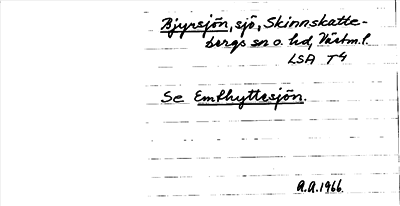 Bjursjön, sjö, Skinnskatte-
bergs sn o. hd, Västm. l.
LSA T4
Se Emthyttesjön.
A.A. 1966.